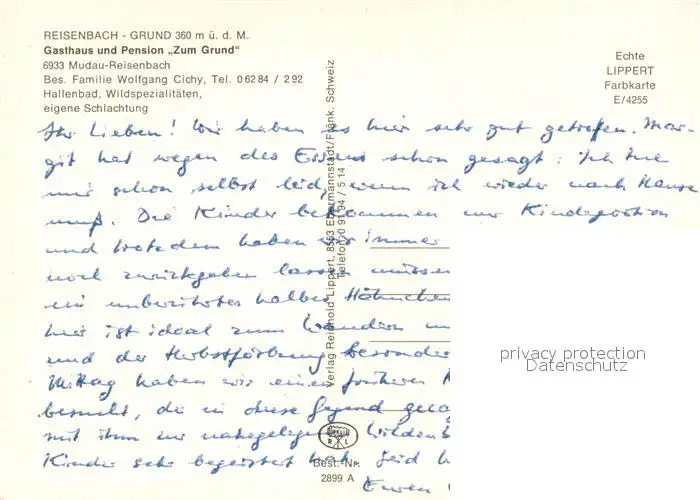 REISENBACH - GRUND 360 m ü. d. M.
Gasthaus und Pension „Zum Grund“
6933 Mudau-Reisenbach
Bes. Familie Wolfgang Cichy, Tel. 06284 / 292
Hallenbad, Wildspezialitäten,
eigene Schlachtung
Echte
LIPPERT
Farbkarte
E/4255
Verlag Reinhold Lippert, 8553 Ebermannstadt/Fränk. Schweiz
Telefon 0 91 94 / 5 14
Ihr Lieben! Wir haben es hier sehr gut getroffen. Mar-
git hat wegen des Essens schon gesagt: Ich tue
mir schon selbst leid, wenn ich wieder nach Hause
muß. Die Kinder bekommen nur Kinderportion
und trotzdem haben wir immer
noch zurückgeben lassen müssen
ein unberührtes halbes Hähnchen
hier ist ideal zum Wandern
und der Herbstfärbung besonder
Mittag haben wir einen früheren
besucht, der in diese Gegend
mit ihm im nahegelegenen
Kinder sehr begeistert hat. Seid
Euren
privacy protection
Datenschutz
R L
Best.-Nr.
2899 A